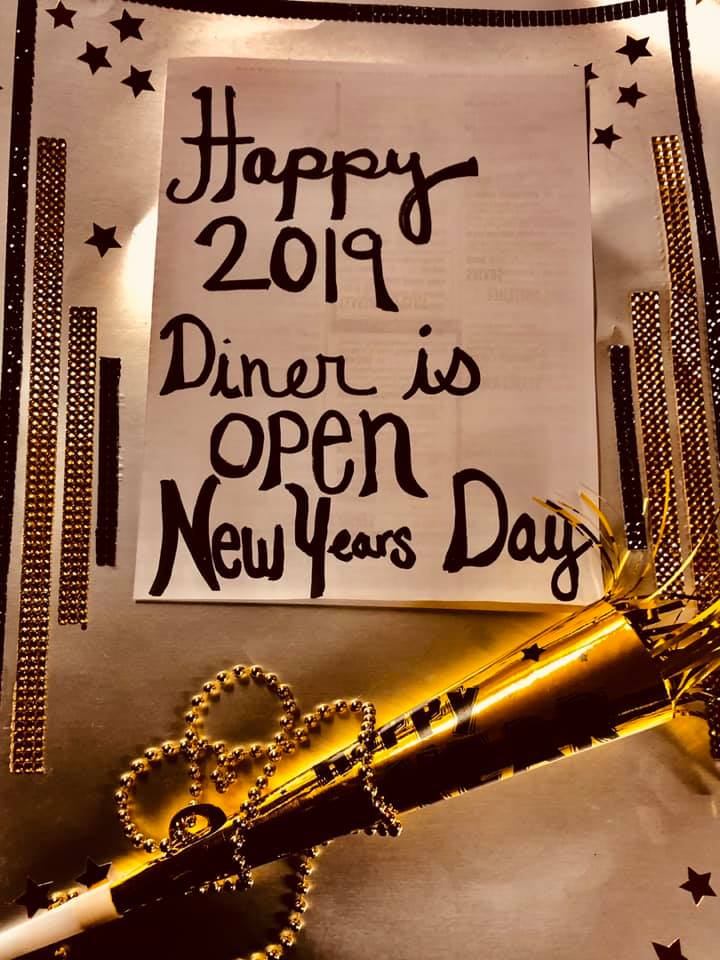 Happy
2019
Diner is
open
New Years Day
HAPPY
YEAR